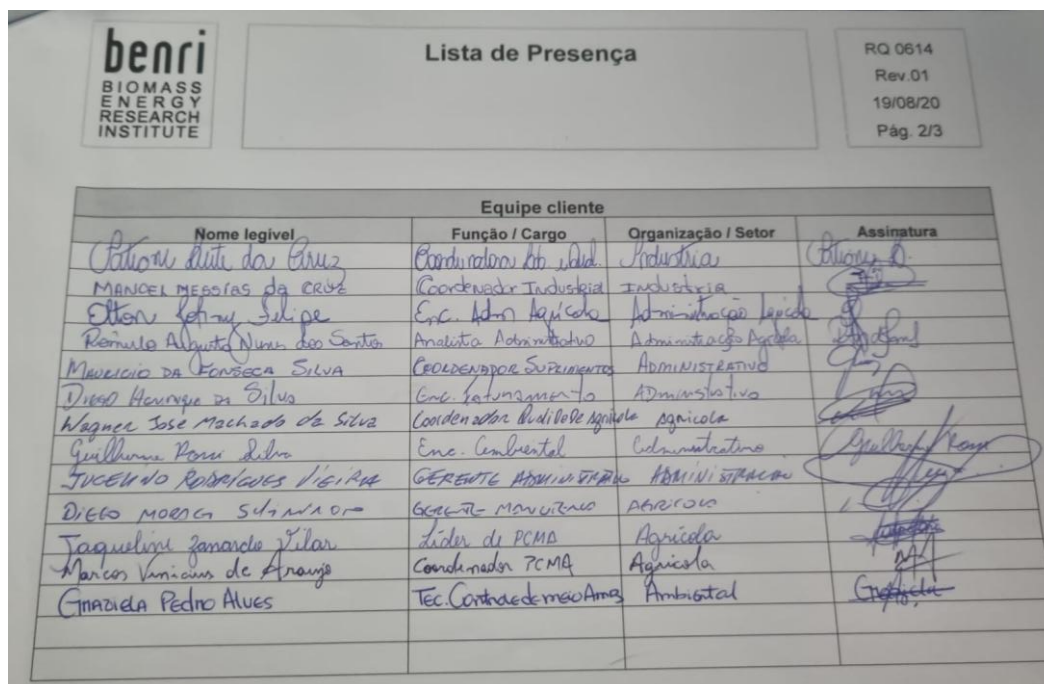 benri
BIOMASS
ENERGY
RESEARCH
INSTITUTE
Lista de Presença
RQ 0614
Rev.01
19/08/20
Pág. 2/3
Equipe cliente
Nome legível Função / Cargo Organização / Setor Assinatura
da Cruz Industria
MANOEL MESSIAS da CRUZ Coordenador Industrial INDUSTRIA
Elton Felipe Enc. Adm Agrícola Administração Agrícola
Rômulo Augusto Nunes dos Santos Analista Administrativo Administração Agrícola
MAURICIO DA FONSECA SILVA COORDENADOR SUPRIMENTOS ADMINISTRATIVO
DIEGO HENRIQUE DA Silva Enc. faturamento ADMINISTRATIVO
Wagner Jose Machado da Silva Coordenador Agricola Agricola
Guilherme Rossi Silva Enc. Ambiental Administrativo
JUCELINO RODRIGUES VIEIRA GERENTE ADMINISTRATIVO ADMINISTRACAO
DIEGO GERENTE AGRICOLA
Jaqueline Zanardo Vilar Líder de PCMA Agrícola
Marcos Vinicius de Araujo Coordenador PCMA Agricola
GRAZIELA PEDRO ALVES Tec. Ambiental Graziela